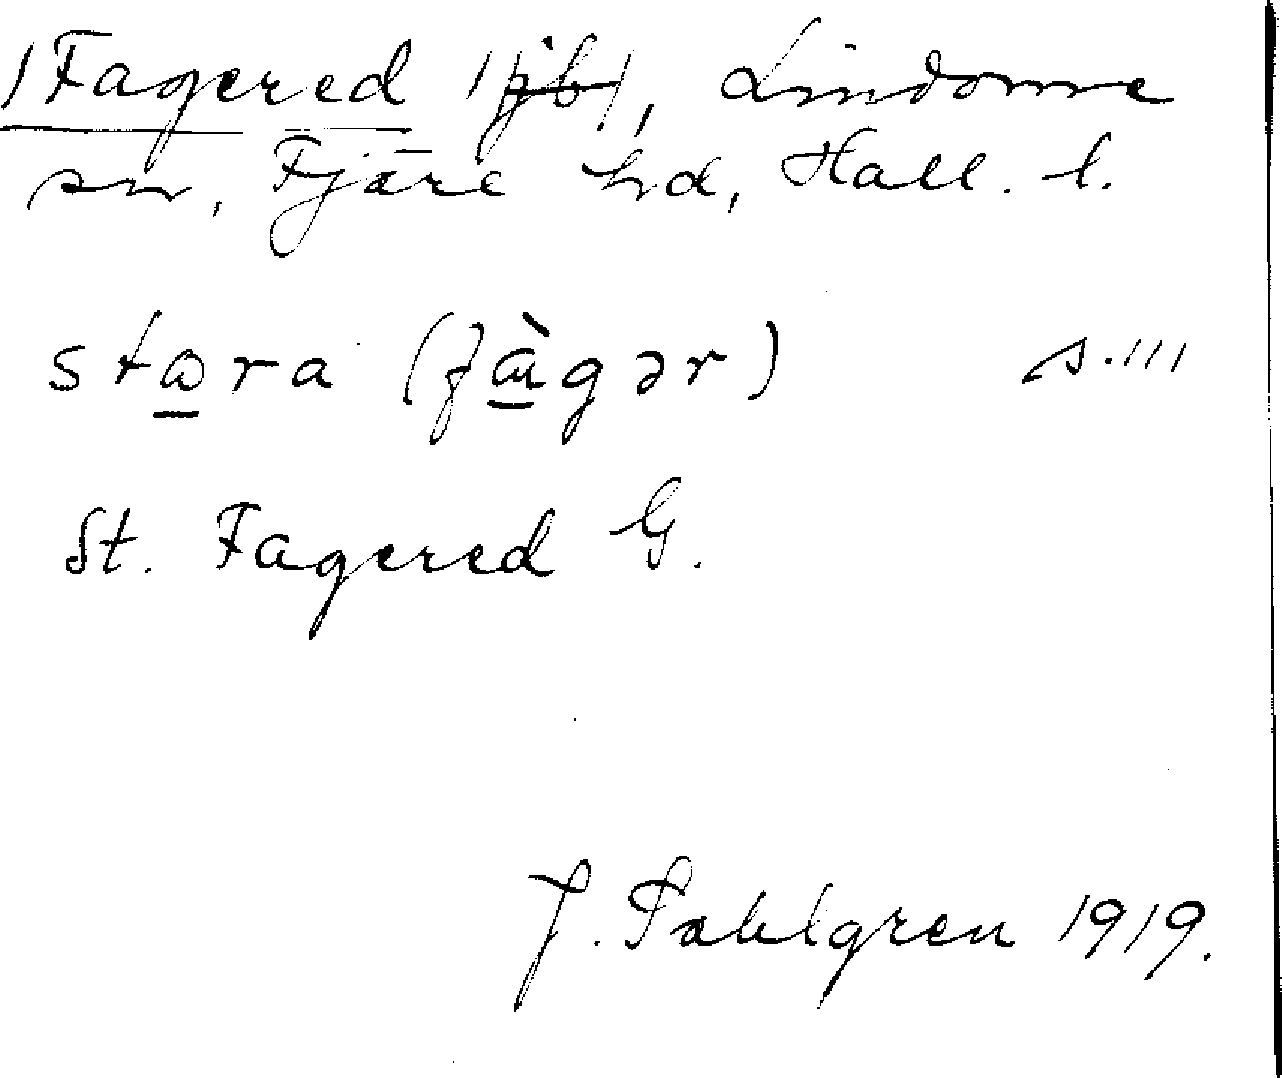 /Fagered /jb/, Lindome
sn, Fjäre hd, Hall. l.
stɷra (fàgər) s. 111
St. Fagered G.
J. Sahlgren 1919.